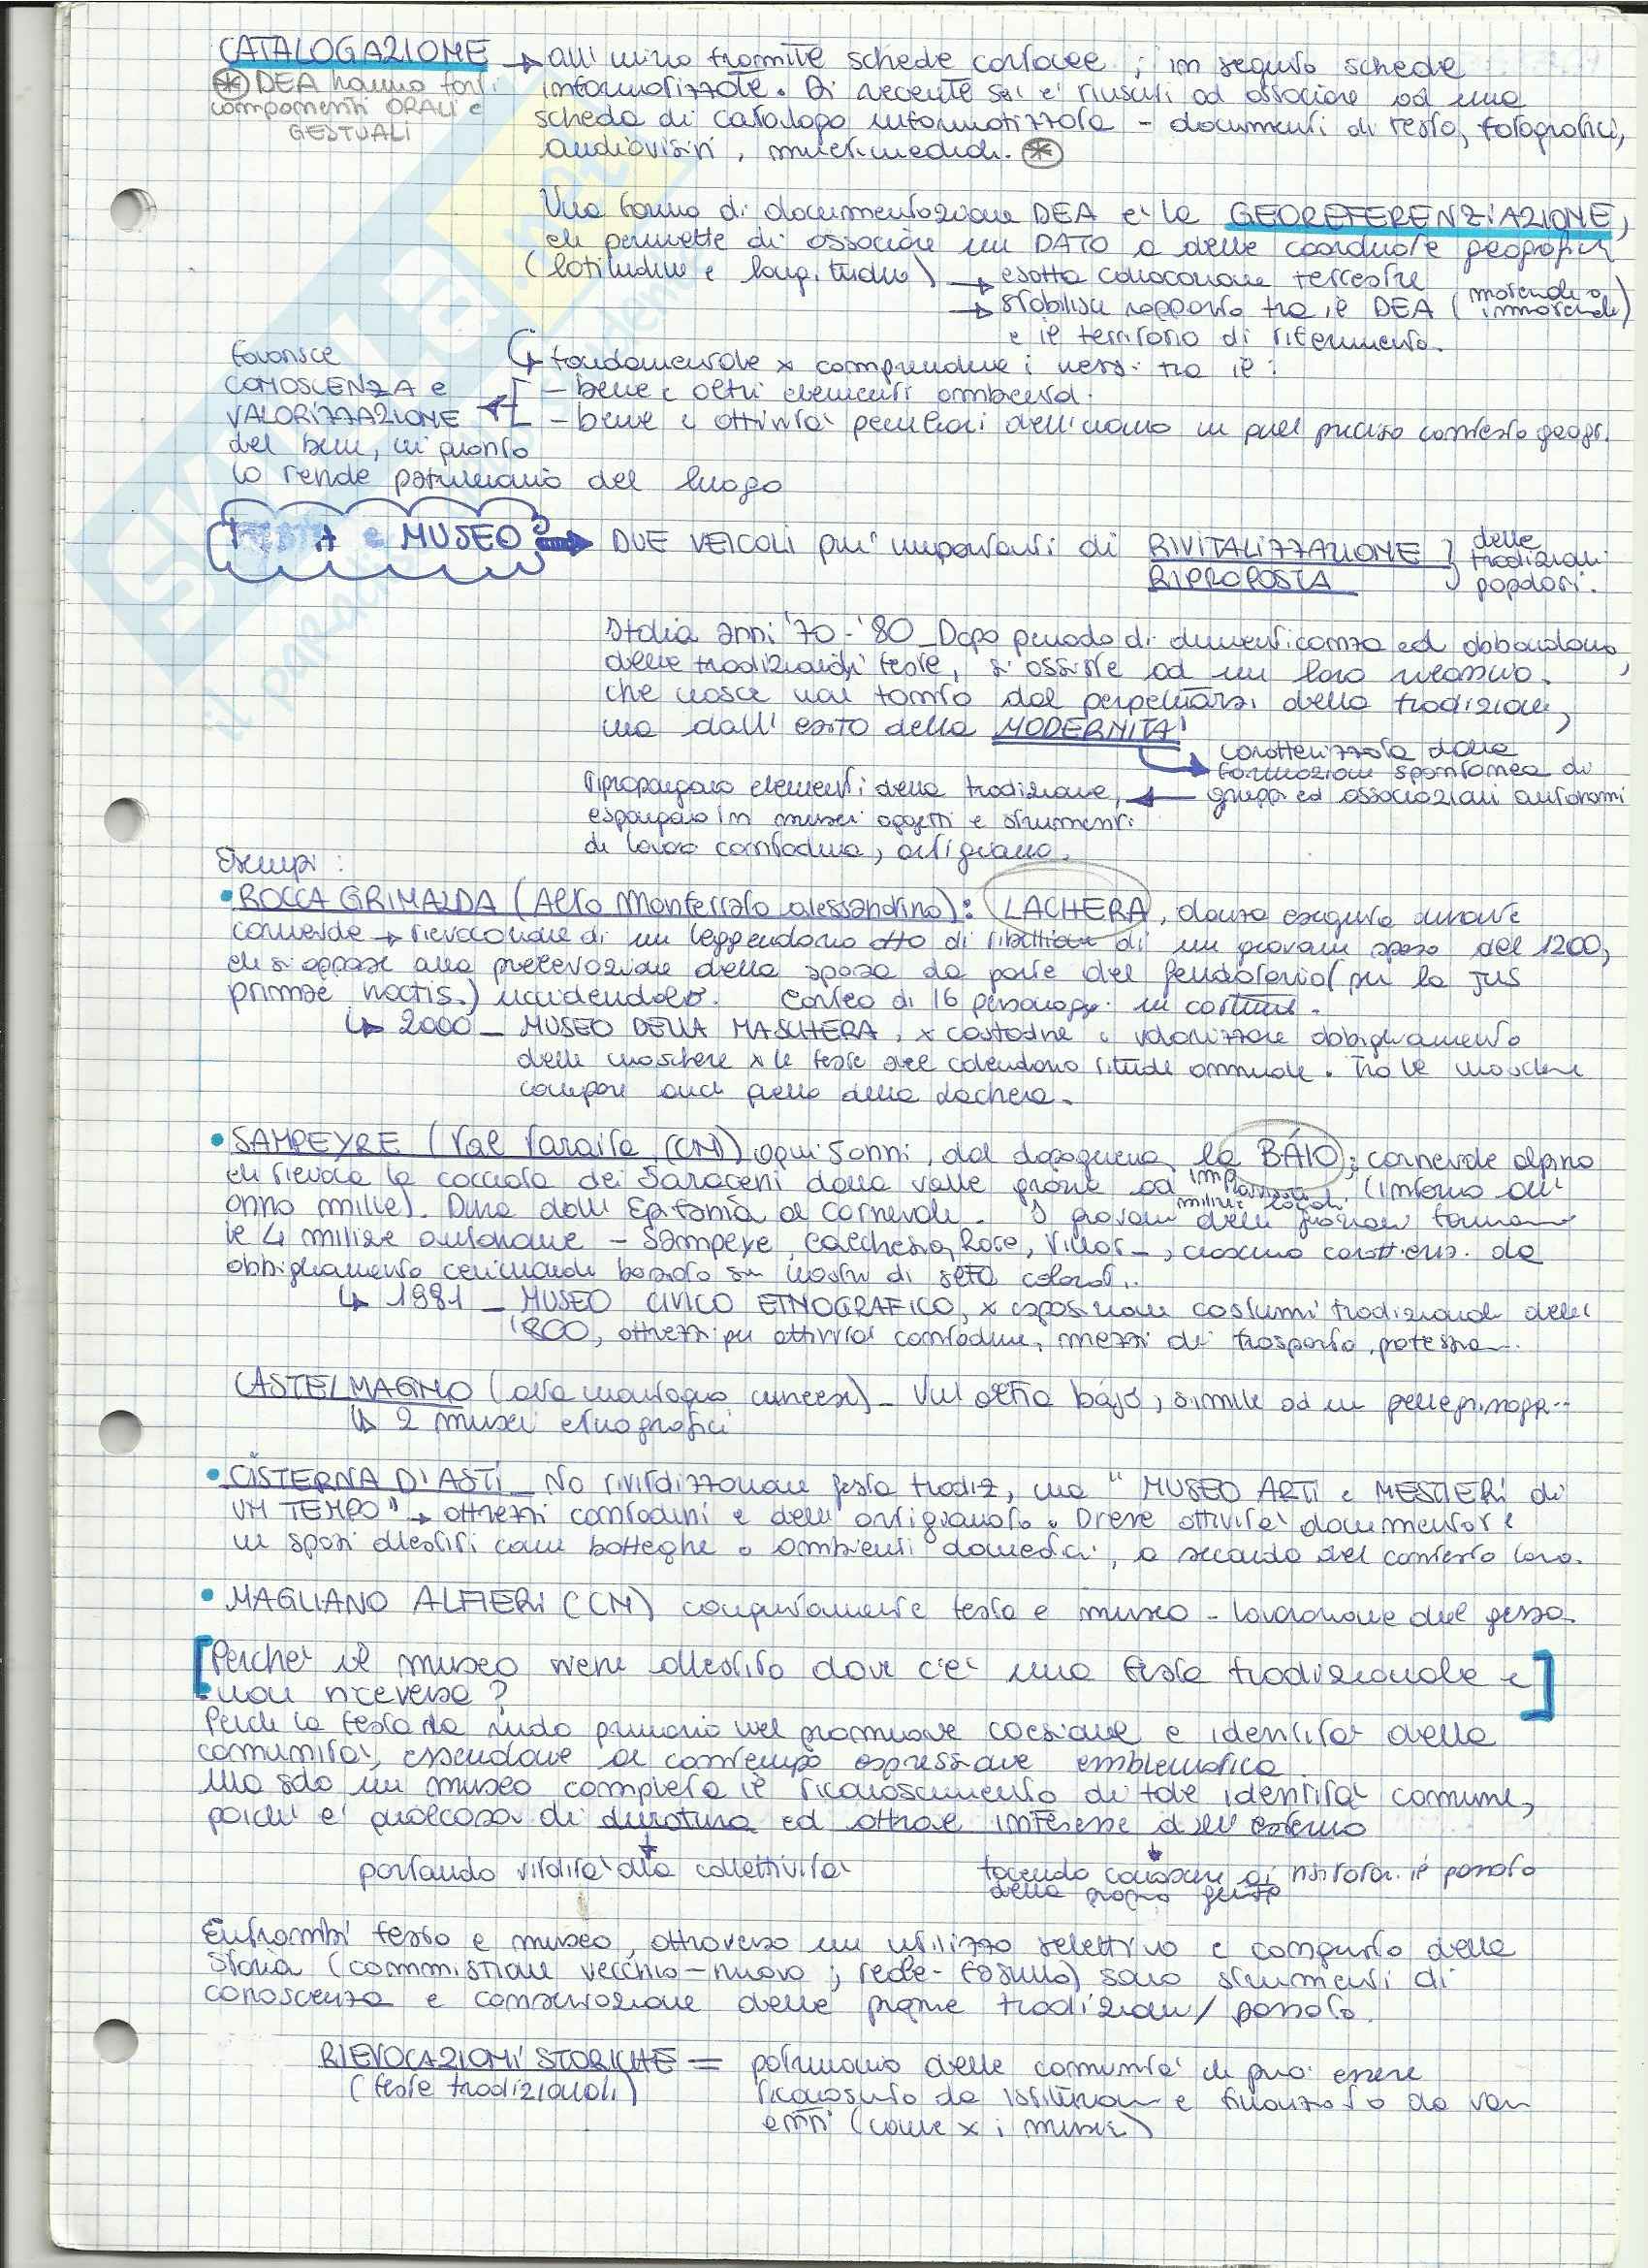 CATALOGAZIONE → all'inizio tramite schede cartacee; in seguito schede
⊛ DEA hanno forti
componenti ORALI e
GESTUALI
informatizzate. Di recente si è riusciti ad associare ad una
scheda di catalogo informatizzata - documenti di testo, fotografici,
audiovisivi, multimediali. ⊛
Una forma di documentazione DEA è la GEOREFERENZIAZIONE,
che permette di associare un DATO a delle coordinate geografiche
(latitudine e longitudine) → esatta collocazione terrestre
→ stabilisce rapporto tra il DEA (materiale o immateriale)
e il territorio di riferimento.
↳ fondamentale x comprendere i nessi tra il:
- bene e altri elementi ambientali
- bene e attività peculiari dell'uomo in quel preciso contesto geogr.
favorisce
CONOSCENZA e
VALORIZZAZIONE
del bene, in quanto
lo rende patrimonio del luogo
FESTA e MUSEO ⇒ DUE VEICOLI più importanti di RIVITALIZZAZIONE
RIPROPOSTA
delle
tradizioni
popolari.
Italia anni '70-'80 - Dopo periodo di dimenticanza ed abbandono
delle tradizionali feste, si assiste ad un loro rilancio,
che nasce non tanto dal perpetuarsi della tradizione,
ma dall'esito della MODERNITA'
↳ caratterizzata dalla
formazione spontanea di
gruppi ed associazioni autonomi
ripropongono elementi della tradizione, ←
espongono in musei oggetti e strumenti
di lavoro contadino, artigiano.
Esempi:
• ROCCA GRIMALDA (Alto Monferrato alessandrino): LACHERA, danza eseguita durante
carnevale → rievocazione di un leggendario atto di ribellione di un giovane sposo del 1200,
che si oppose alla prelevazione della sposa da parte del feudatario (per lo jus
primae noctis) uccidendolo. Corteo di 16 personaggi in costume.
↳ 2000 - MUSEO DELLA MASCHERA, x custodire e valorizzare abbigliamento
delle maschere x le feste del calendario rituale annuale. Tra le maschere
compare anche quella della Lachera.
• SAMPEYRE (Val Varaita (CN)) ogni 5 anni, dal dopoguerra, la BÁIO; carnevale alpino
che rievoca la cacciata dei Saraceni dalla valle grazie ad improvvisate milizie locali (intorno all'
anno mille). Dura dall'Epifania al Carnevale. I giovani delle frazioni formano
le 4 milizie autonome - Sampeyre, Calchesio, Rore, Villar -, ciascuna caratterizz. da
abbigliamento cerimoniale basato su nastri di seta colorati.
↳ 1981 - MUSEO CIVICO ETNOGRAFICO, x esposizione costumi tradizionali dell'
1800, attrezzi per attività contadine, mezzi di trasporto,
CASTELMAGNO (alta montagna cuneese) - Un'altra báio, simile ad un pellegrinagg..
↳ 2 musei etnografici
• CISTERNA D'ASTI - No rivitalizzazione festa tradiz, ma "MUSEO ARTI e MESTIERI di
UN TEMPO" → attrezzi contadini e dell'artigianato. Diverse attività documentate
in spazi allestiti come botteghe o ambienti domestici, a seconda del contesto loro.
• MAGLIANO ALFIERI (CN) congiuntamente festa e museo - lavorazione del gesso.
[Perché il museo viene allestito dove c'è una festa tradizionale e
non viceversa?]
Perché la festa ha ruolo primario nel promuove coesione e identità della
comunità, essendone al contempo espressione emblematica.
Ma solo un museo completa il riconoscimento di tale identità comune,
poiché è qualcosa di duraturo ed attrae interesse dall'esterno
portando vitalità alla collettività
facendo conoscere ai visitatori il passato
della propria gente
Entrambi festa e museo, attraverso un utilizzo selettivo e congiunto della
Storia (commistione vecchio-nuovo; reale-fasullo) sono strumenti di
conoscenza e conservazione delle proprie tradizioni/passato.
RIEVOCAZIONI STORICHE = patrimonio delle comunità che può essere
(feste tradizionali) riconosciuto da istituzioni e finanziato da vari
enti (come x i musei)